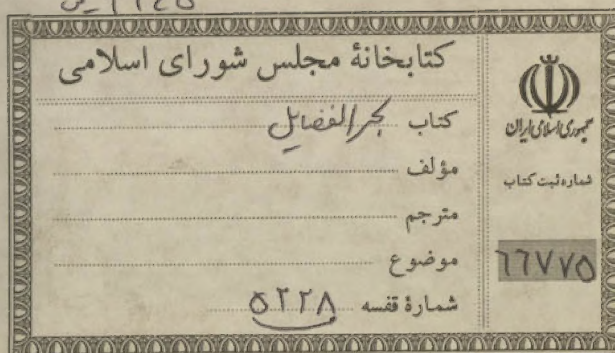 کتابخانهٔ مجلس شورای اسلامی
کتاب بحر الفضایل
مؤلف
مترجم
موضوع
شمارهٔ قفسه ۵۲۲۸
جمهوری اسلامی ایران
شماره ثبت کتاب
۶۶۷۷۵